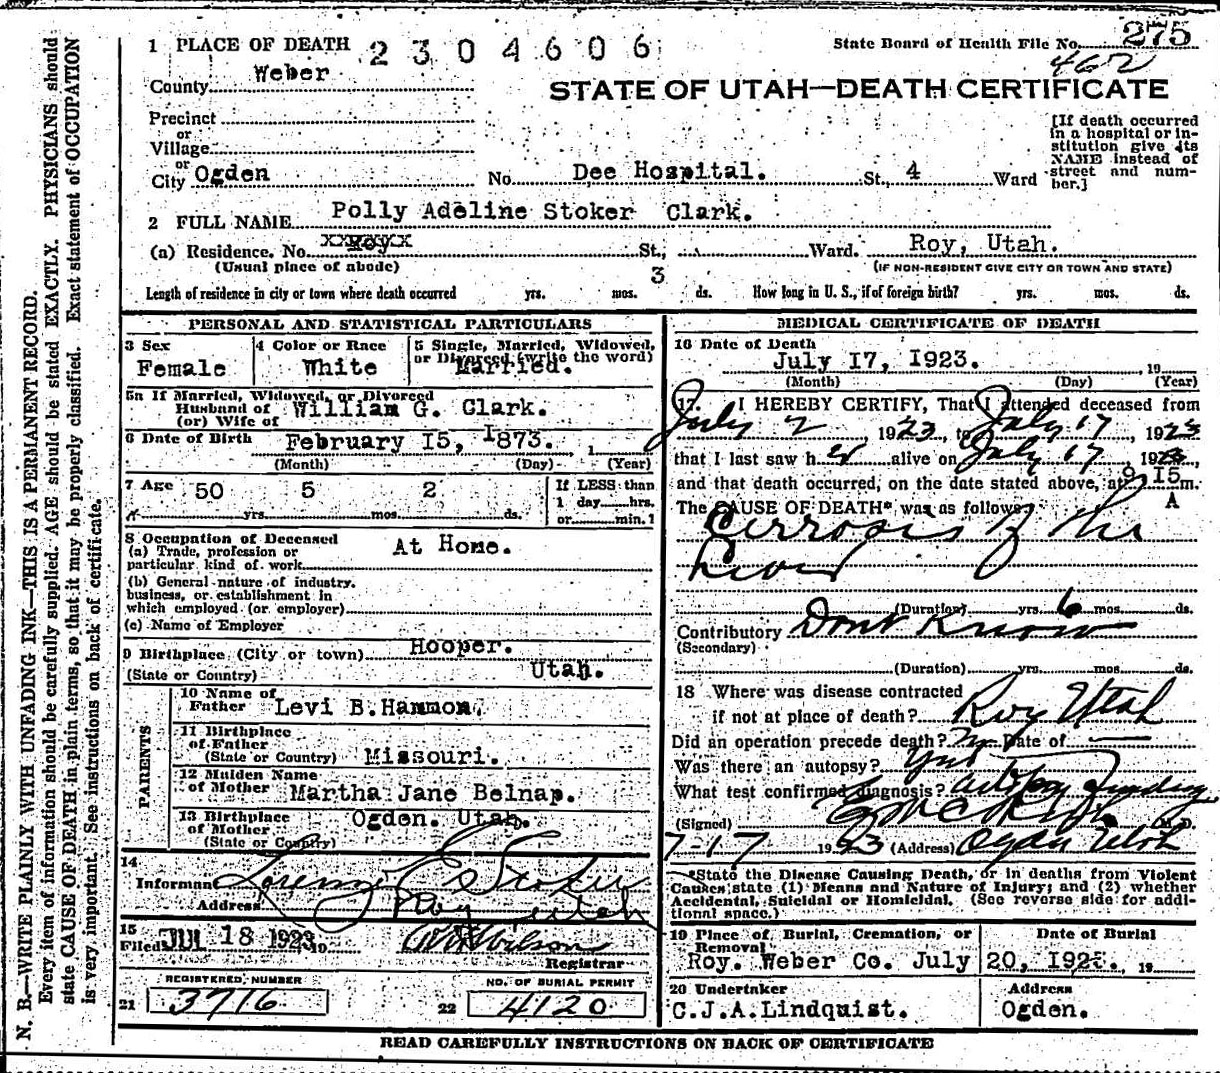 1 PLACE OF DEATH 2304606
State Board of Health File No. 275
462
County Weber
STATE OF UTAH—DEATH CERTIFICATE
Precinct
or
Village
or
City Ogden No. Dee Hospital. St., 4 Ward
[If death occurred in a hospital or institution give its NAME instead of street and number.]
2 FULL NAME Polly Adeline Stoker Clark.
(a) Residence. No. Roy St., Ward. Roy, Utah.
(Usual place of abode) (IF NON-RESIDENT GIVE CITY OR TOWN AND STATE)
Length of residence in city or town where death occurred yrs. mos. 3 ds. How long in U. S., if of foreign birth? yrs. mos. ds.
PERSONAL AND STATISTICAL PARTICULARS
3 Sex
Female
4 Color or Race
White
5 Single, Married, Widowed, or Divorced (write the word)
Married.
5a If Married, Widowed, or Divorced
Husband of
(or) Wife of William G. Clark.
6 Date of Birth February I5, I873. , 1
(Month) (Day) (Year)
7 Age 50 yrs. 5 mos. 2 ds.
If LESS than
1 day hrs.
or min. 1
8 Occupation of Deceased
(a) Trade, profession or
particular kind of work At Home.
(b) General nature of industry.
business, or establishment in
which employed (or employer)
(c) Name of Employer
9 Birthplace (City or town) Hooper.
(State or Country) Utah.
PARENTS
10 Name of
Father Levi B.Hammon.
11 Birthplace
of Father
(State or Country) Missouri.
12 Maiden Name
of Mother Martha Jane Belnap.
13 Birthplace
of Mother Ogden. Utah.
(State or Country)
14
Informant Lorenzo E Stoker
Address Roy Utah
15
Filed JUL 18 1923 19 Wilson
Registrar
REGISTERED NUMBER
21 3716
NO. OF BURIAL PERMIT
22 4120
MEDICAL CERTIFICATE OF DEATH
16 Date of Death
July I7, I923. 19
(Month) (Day) (Year)
17. I HEREBY CERTIFY, That I attended deceased from
July 2 1923, to July 17, 1923
that I last saw her alive on July 17, 1923,
and that death occurred, on the date stated above, at 9 I5 m.
A
The CAUSE OF DEATH* was as follows:
Cirrosis of the
Liver
(Duration) yrs. 6 mos. ds.
Contributory Dont Know
(Secondary)
(Duration) yrs. mos. ds.
18 Where was disease contracted
if not at place of death? Roy Utah
Did an operation precede death? No Date of —
Was there an autopsy? Yes
What test confirmed diagnosis? autopsy finding
(Signed) M. D.
7-17 1923 (Address) Ogden Utah
*State the Disease Causing Death, or in deaths from Violent
Causes state (1) Means and Nature of Injury; and (2) whether
Accidental, Suicidal or Homicidal. (See reverse side for additional space.)
19 Place of Burial, Cremation, or
Removal
Roy. Weber Co.
Date of Burial
July 20, I923. , 19
20 Undertaker
C.J.A.Lindquist.
Address
Ogden.
READ CAREFULLY INSTRUCTIONS ON BACK OF CERTIFICATE
N. B.—WRITE PLAINLY WITH UNFADING INK—THIS IS A PERMANENT RECORD.
Every item of information should be carefully supplied. AGE should be stated EXACTLY. PHYSICIANS should
state CAUSE OF DEATH in plain terms, so that it may be properly classified. Exact statement of OCCUPATION
is very important. See instructions on back of certificate.